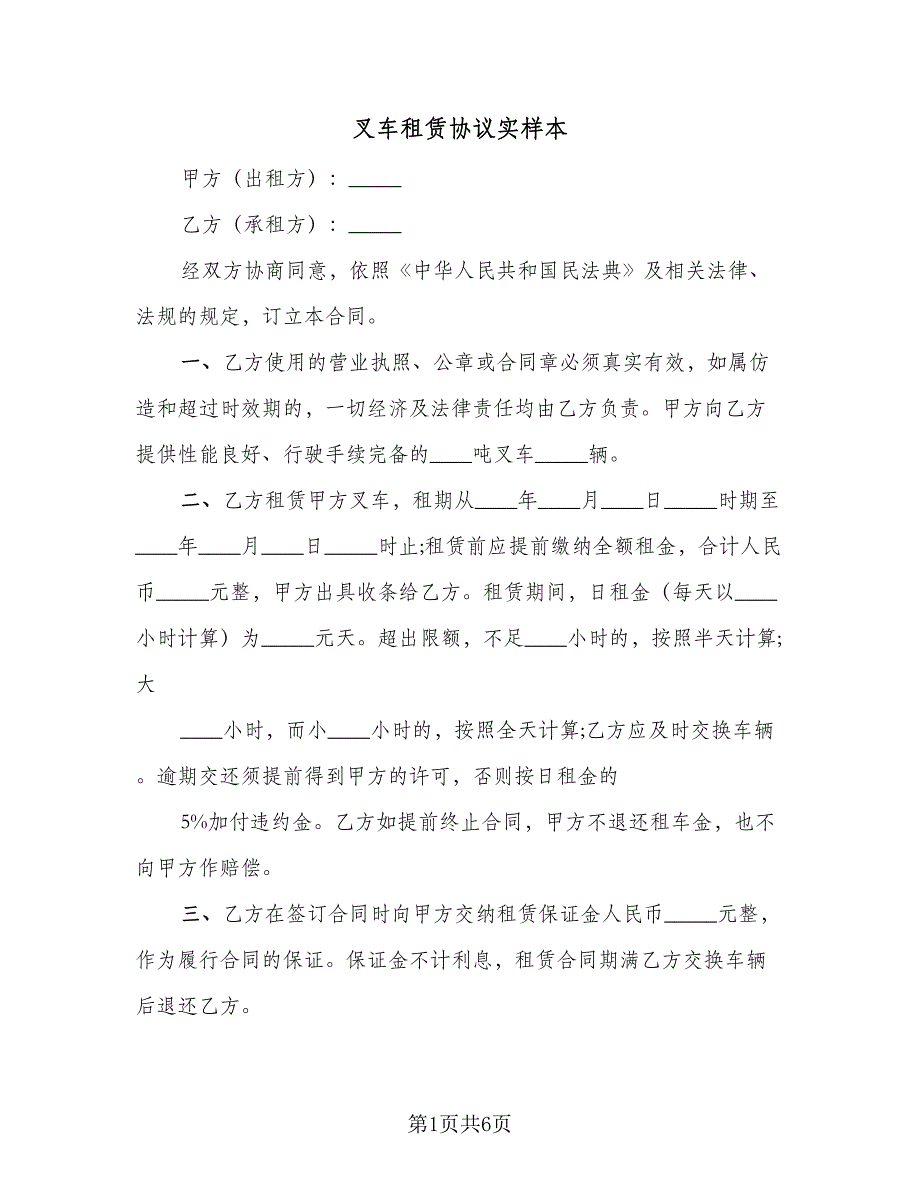 叉车租赁协议实样本
甲方（出租方）：_____
乙方（承租方）：_____
经双方协商同意，依照《中华人民共和国民法典》及相关法律、
法规的规定，订立本合同。
一、乙方使用的营业执照、公章或合同章必须真实有效，如属仿
造和超过时效期的，一切经济及法律责任均由乙方负责。甲方向乙方
提供性能良好、行驶手续完备的____吨叉车_____辆。
二、乙方租赁甲方叉车，租期从____年____月____日_____时期至
____年____月____日_____时止;租赁前应提前缴纳全额租金，合计人民
币_____元整，甲方出具收条给乙方。租赁期间，日租金（每天以____
小时计算）为_____元天。超出限额，不足____小时的，按照半天计算;
大
____小时，而小____小时的，按照全天计算;乙方应及时交换车辆
。逾期交还须提前得到甲方的许可，否则按日租金的
5%加付违约金。乙方如提前终止合同，甲方不退还租车金，也不
向甲方作赔偿。
三、乙方在签订合同时向甲方交纳租赁保证金人民币_____元整，
作为履行合同的保证。保证金不计利息，租赁合同期满乙方交换车辆
后退还乙方。
第1页共6页